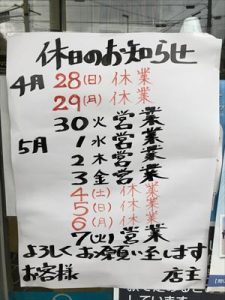 休日のお知らせ
4月 28(日) 休業
29(月) 休業
30 火 営業
5月 1 水 営業
2 木 営業
3 金 営業
4(土) 休業
5(日) 休業
6(月) 休業
7(火) 営業
よろしくお願い致します
お客様 店主